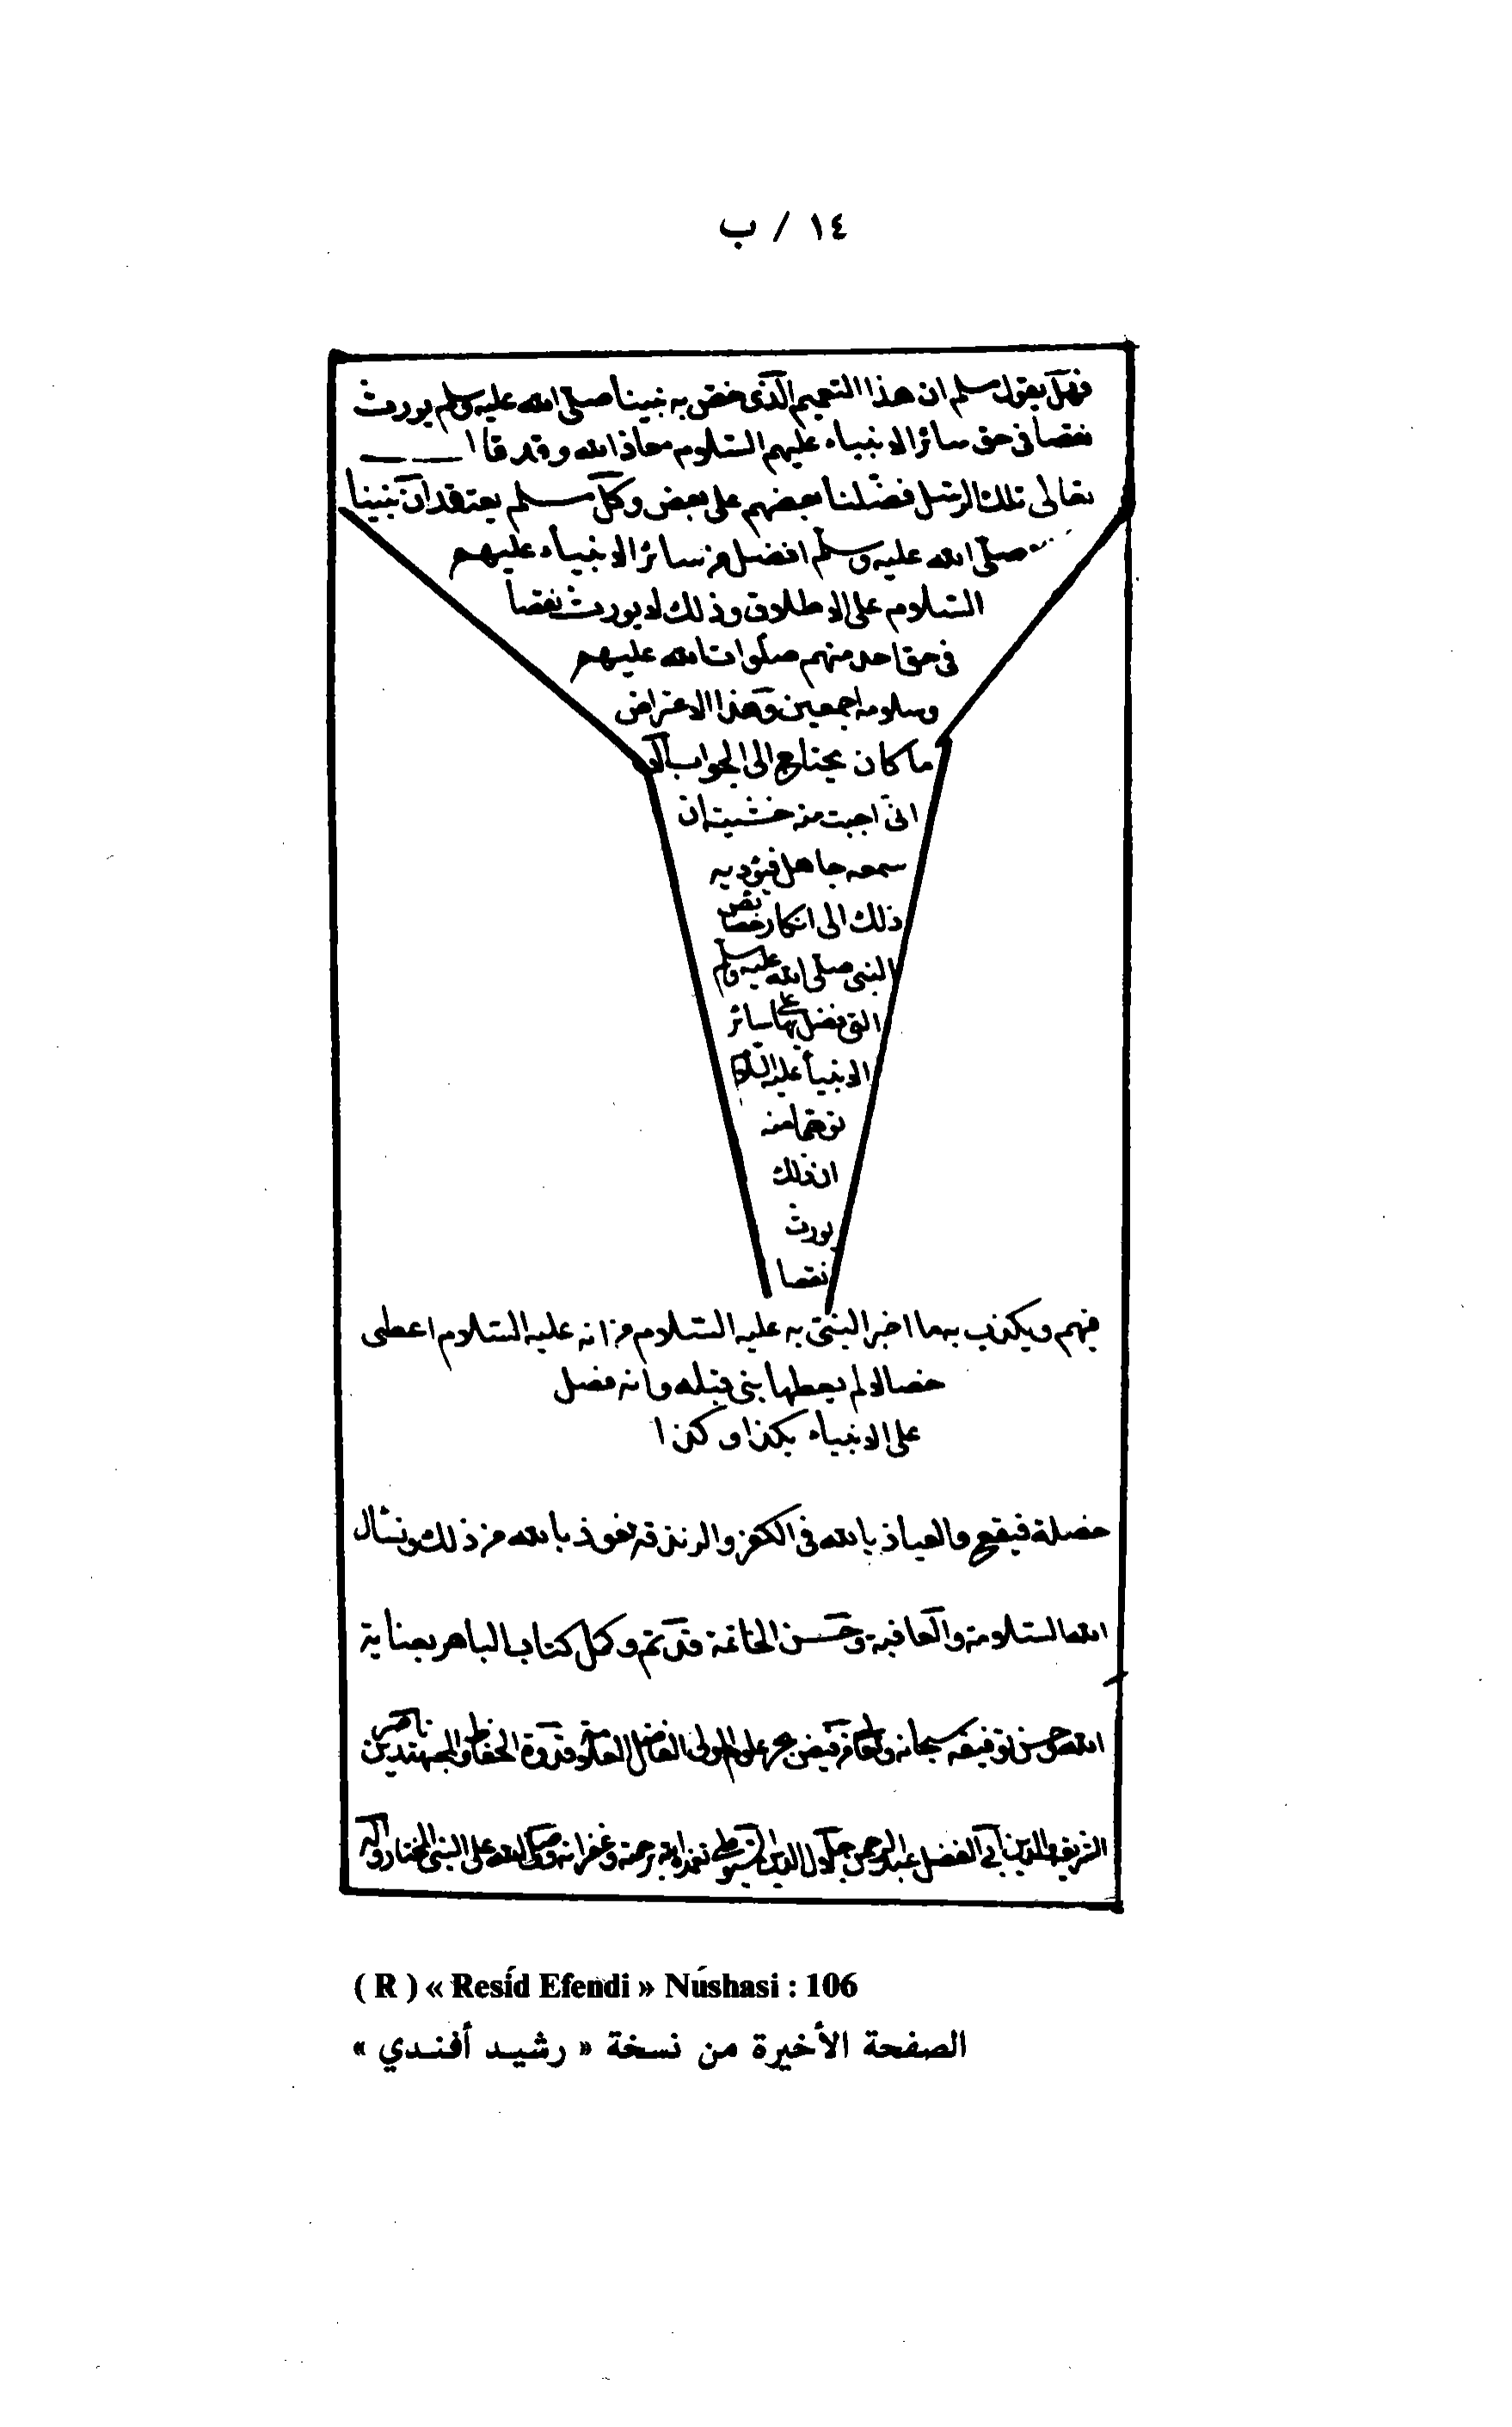 ١٤ / ب
فهل يقول مسلم ان هذا التعميم الذى خص به نبينا صلى الله عليه وسلم يورث
نقصا فى حق سائر الانبياء عليهم السلام معاذ الله وقد قال
تعالى تلك الرسل فضلنا بعضهم على بعض وكل مسلم يعتقد ان نبينا
صلى الله عليه وسلم افضل من سائر الانبياء عليهم
السلام على الاطلاق وذلك لا يورث نقصا
فى حق احد منهم صلوات الله عليهم
وسلامه اجمعين وهذا الاعتراض
ما كان يحتاج الى الجواب الا
انى اجبت منه خشية ان
سمعه جاهل فيؤديه
ذلك الى انكار خصائص
النبى صلى الله عليه وسلم
التى فضل بها على سائر
الانبيأ عليهم السلام
توهما منه
ان ذلك
يورث
نقصا
فيهم ويكذب بما اخبر النبى به عليه السلام من انه عليه السلام اعطى
خصالا لم يعطها نبى قبله وانه فضل
على الانبياء بكذا وكذا
خصلة فيقع والعياذ بالله فى الكفر والزندقة نعوذ بالله من ذلك ونسأل
الله السلامة والعافية وحسن الخاتمة قد تم وكمل كتاب الباهر بعناية
الله وحسن توفيقه سبحانه وتعالى من فيض بحر علوم المولى الفاضل العلامة وقدوة الحفاظ والمجتهدين ناصر
الشريعة والدين ابى الفضل عبد الرحمن جلال الدين السيوطى تغمده الله برحمته وغفرانه وصلى الله على النبى المختار وآله
( R ) « Resíd Efendi » Núshasi : 106
الصفحة الأخيرة من نسخة « رشيد أفندي »